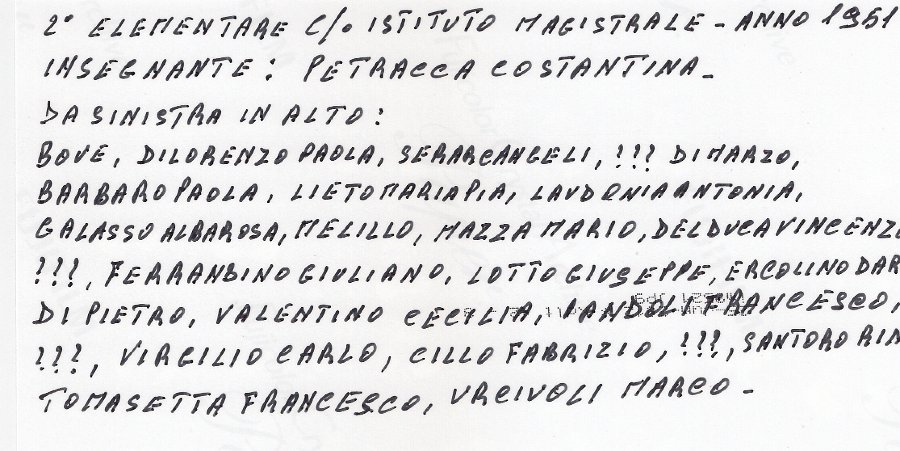 2° ELEMENTARE C/o ISTITUTO MAGISTRALE - ANNO 1951
INSEGNANTE: PETRACCA COSTANTINA -
DA SINISTRA IN ALTO:
BOVE, DI LORENZO PAOLA, SERARCANGELI, !!! DI MARZO,
BARBARO PAOLA, LIETO MARIA PIA, LAUDONIA ANTONIA,
GALASSO ALBAROSA, MELILLO, MAZZA MARIO, DEL DUCA VINCENZO
!!!, FERRANDINO GIULIANO, LOTTO GIUSEPPE, ERCOLINO DAR
DI PIETRO, VALENTINO CECILIA, PANDOLI FRANCESCO,
!!!, VIRGILIO CARLO, CILLO FABRIZIO, !!!, SANTORO RIN
TOMASETTA FRANCESCO, URCIVOLI MARCO -